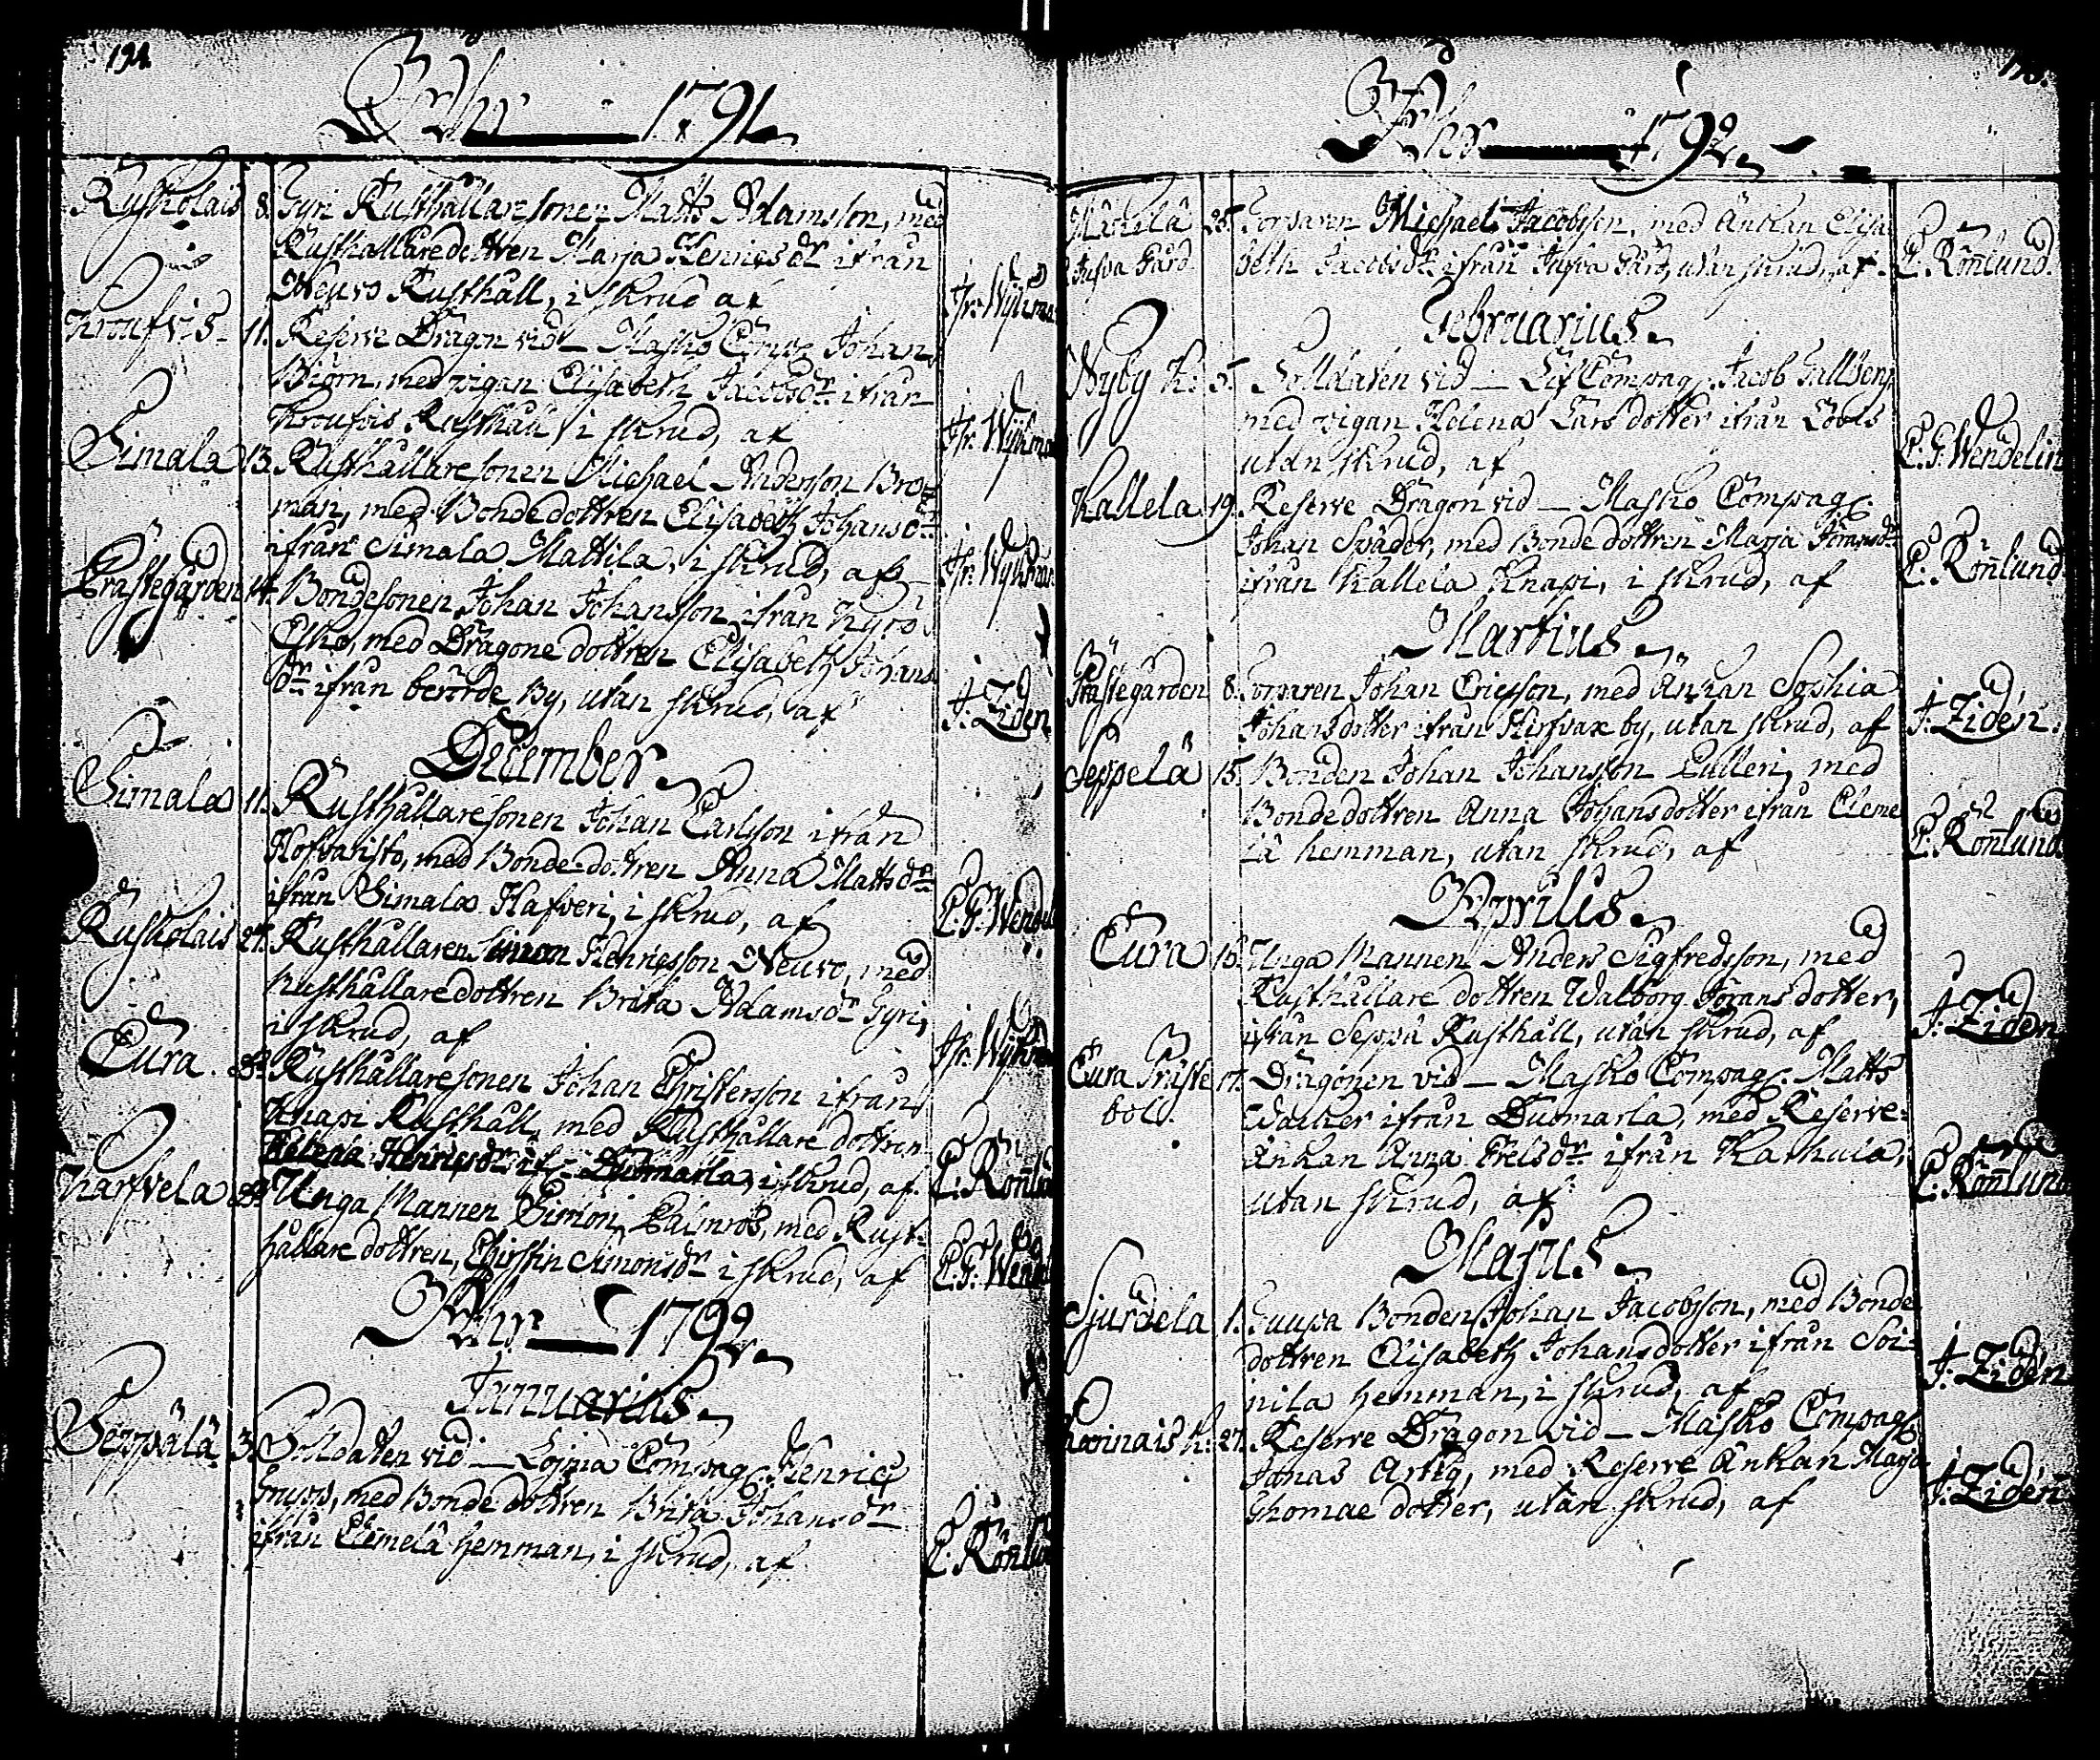 194.
Åhr 1791
Ruskolais 8. Gyri Rusthållaresonen Matts Adamsson, med
Rusthållaredottren Maria Henricsdr ifrån
Neuvo Rusthåll, i skrud af
Fr. Wijkma
11. Reserve Dragon vid Masko Comp. Johan
Biörn, med pigan Elisabeth Jacobsdr ifrån
Rusthåll, i skrud, af
Fr. Wijkma
Simala 13. Rusthållaresonen Michael Andersson Bro
man, med Bondedottren Elisabeth Johansdr
ifrån Simala Mattila, i skrud, af
Fr. Wijkma
Prästegården 14. Bondesonen Johan Johansson ifrån Kyrö
Esko, med Dragone dottren Elisabeth Johans
dr ifrån berörde By, utan skrud, af
J. Zidén
December
Simala 11. Rusthållaresonen Johan Carlsson ifrån
Hofvaristo, med Bonde-dottren Anna Mattsdr
ifrån Simala Hafveri, i skrud, af
P. G. Wendel
Ruskolais 27. Rusthållaren Simon Henricsson Neuvo, med
Rusthållaredottren Brita Adamsdr Gyri,
i skrud, af
Fr. Wijkma
Eura. Rusthållaresonen Johan Christersson ifrån
Knapi Rusthåll, med Rusthållare dottren
Helena Henricsdr if. Duomarla, i skrud, af
P. Rönlu
Karfvela Unga Mannen Simon Palmros, med Rust-
hållare dottren, Christin Simonsdr i skrud, af
P. G. Wendel
Åhr 1792
Januarius
Seppälä 3. Soldaten vid Lojma Compag. Henric
med Bonde dottren Brita Johansdr
ifrån Clemelä hemman, i skrud, af
P. Rönlu
Åhr 1792
28. Torparen Michael Jacobsson, med Änkan Elisa
Jusva Gård beth Jacobsdr ifrån Jusva Gård, utan skrud, af
P. Rönlund.
Februarius
Nyby K. 5. Solldaten vid Lif Compag. Jacob Gallberg
med pigan Helena Lars dotter ifrån
utan skrud, af
P. G. Wendelin
Kallela 19. Reserve Dragon vid Masko Compag.
Johan Spåder, med Bonde dottren Maria Göransdr
ifrån Kallela Knapi, i skrud, af
P. Rönlund
Martius
Prästegården 8. Torparen Johan Ericsson, med Änkan Sophia
Johansdotter ifrån Hirfvax by, utan skrud, af
J. Zidén.
Seppelä 15. Bonden Johan Johansson Pulleri, med
Bondedottren Anna Johansdotter ifrån Cleme
lä hemman, utan skrud, af
P. Rönlund
Aprilis
Eura 15. Unga Mannen Anders Sigfredsson, med
Rusthållare dottren Walborg Görans dotter,
ifrån Seppä Rusthåll, utan skrud, af
J. Zidén
Eura Präste 17. Dragonen vid Masko Compag. Matts
bol. Wacker ifrån Duomarla, med Reserve-
Änkan Anna Erelsdr ifrån Karhula,
utan skrud, af
P. Rönlund
Majus
Sjurdela 1. Bonden Johan Jacobsson, med Bonde
dottren Elisabeth Johansdotter ifrån Soi-
nila hemman, i skrud, af
J. Zidén
27. Reserve Dragon vid Masko Compag.
Jonas Artig, med Reserve Änkan Maria
Thomae dotter, utan skrud, af
J. Zidén